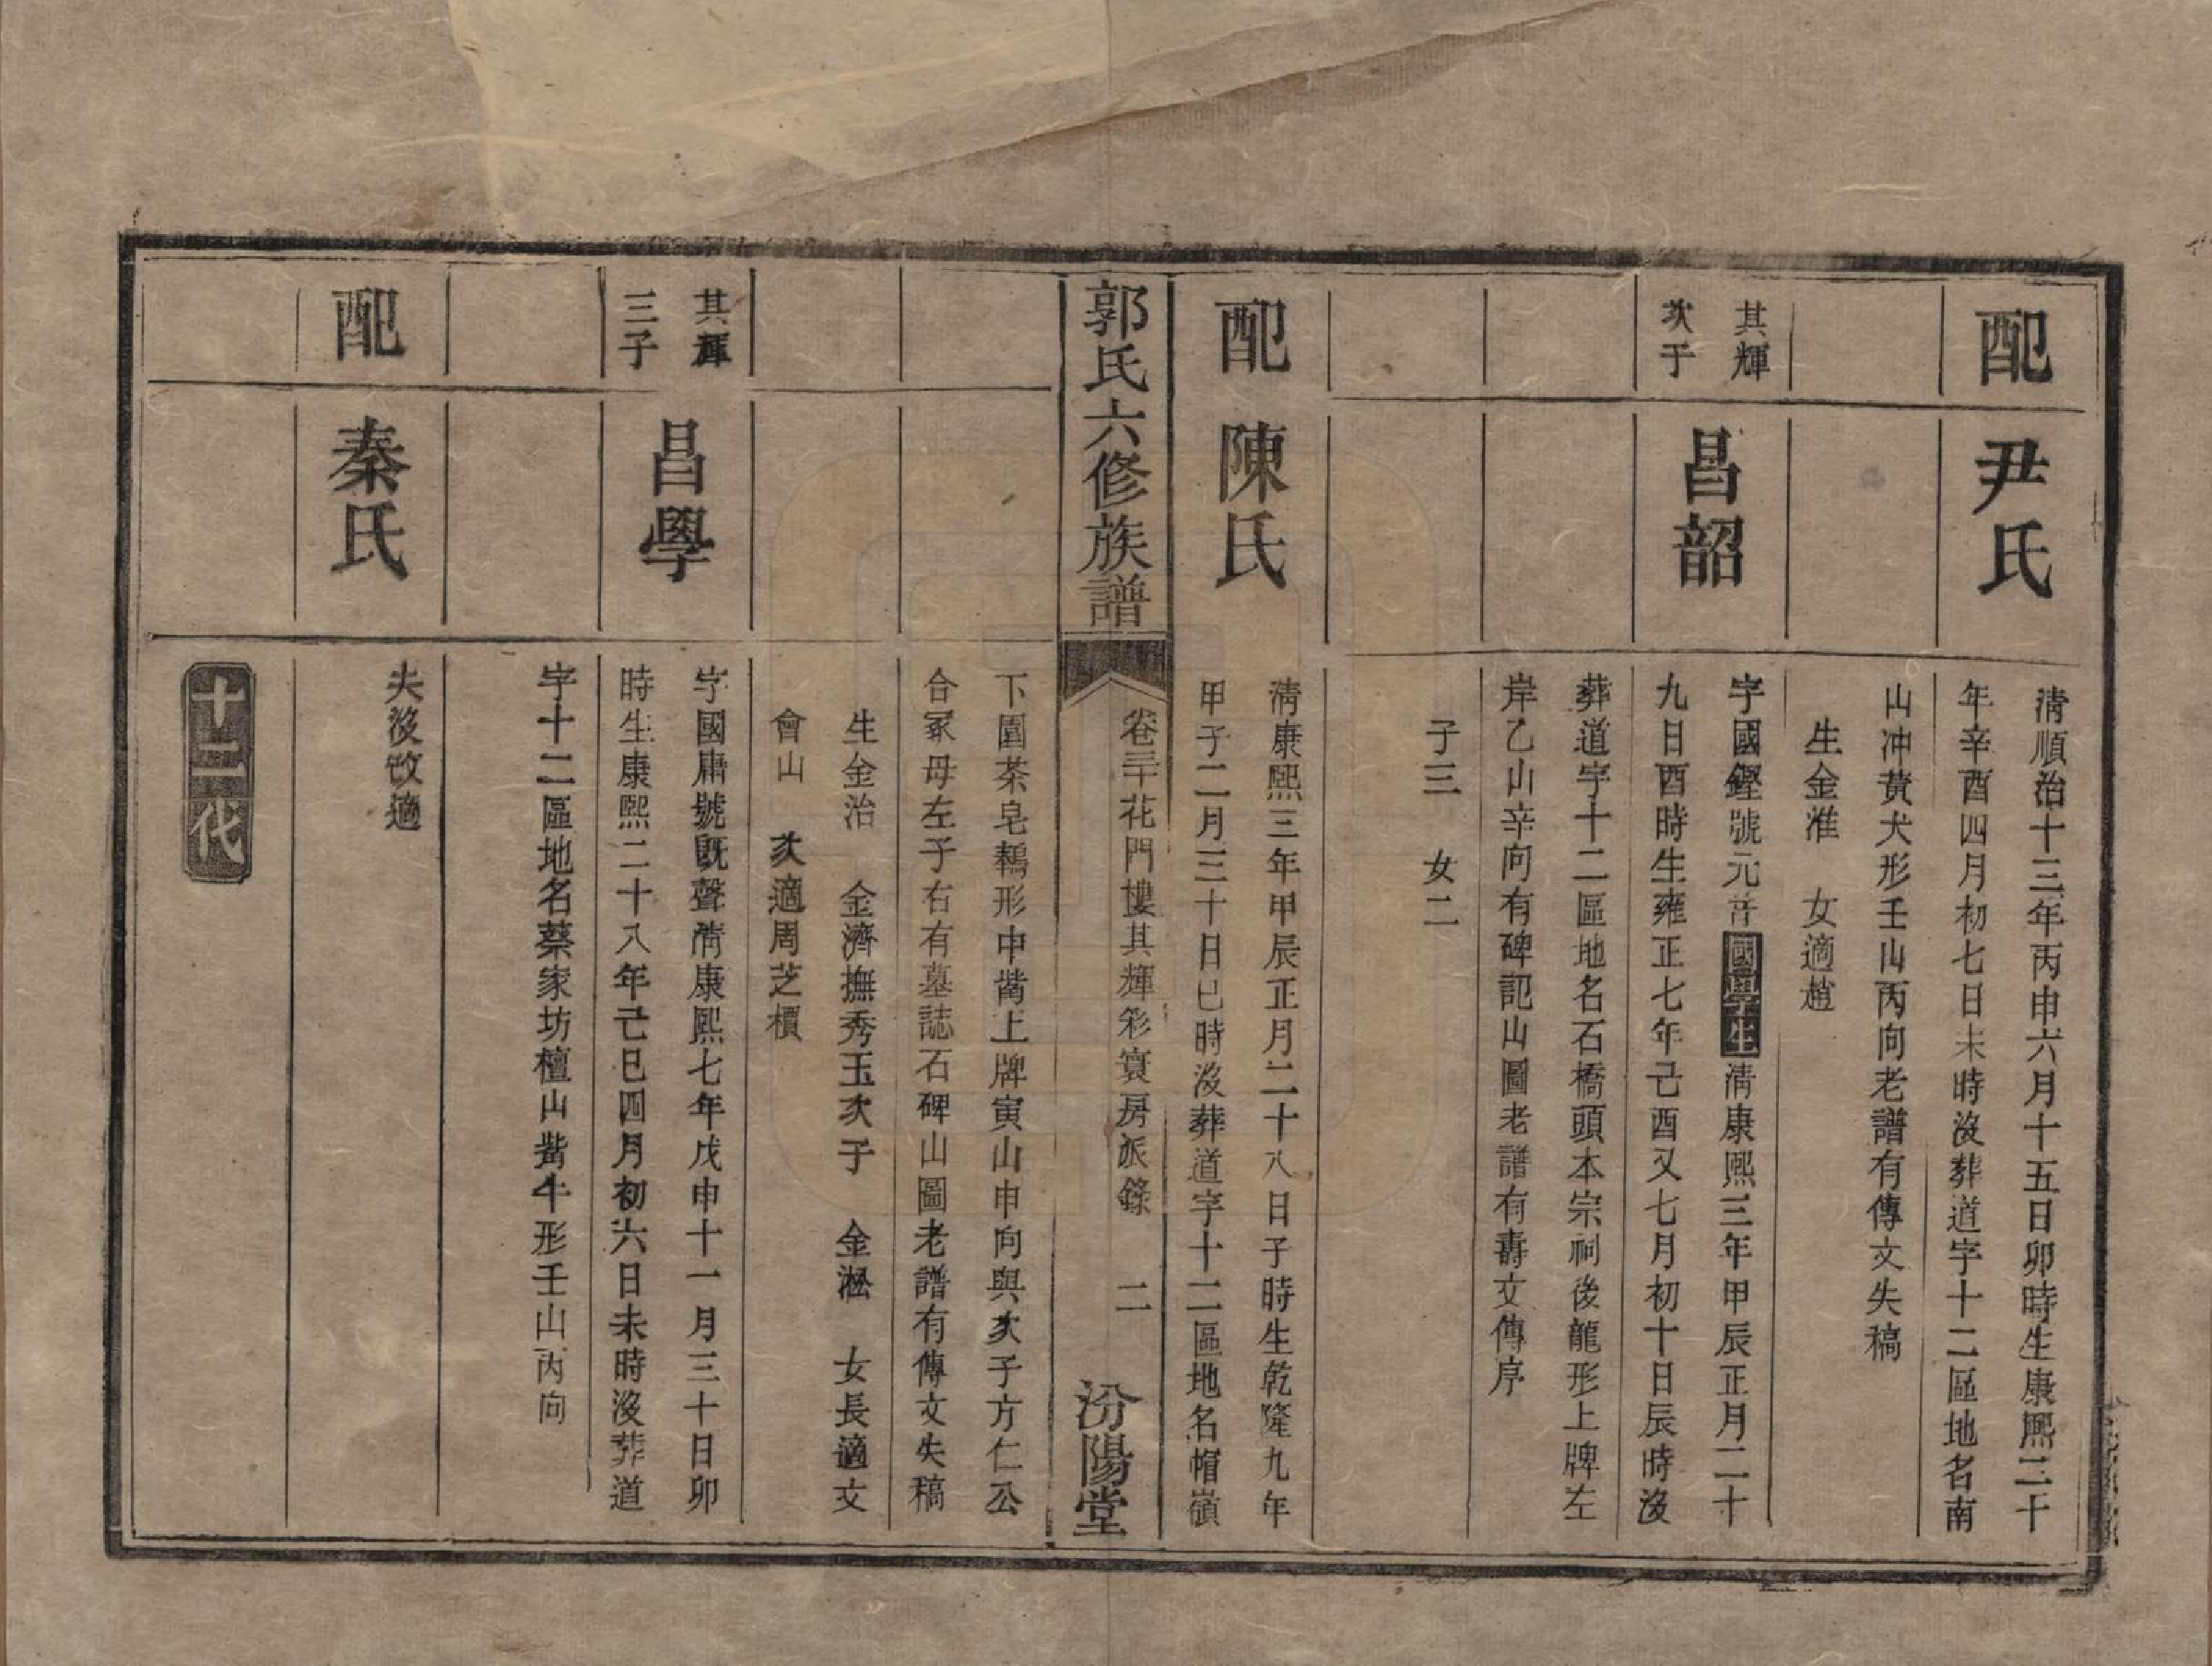 配
尹氏
淸順治十三年丙申六月十五日卯時生康熙二十
年辛酉四月初七日未時沒葬道字十二區地名南
山冲黃犬形壬山丙向老譜有傳文失稿
生金淮　女適趙
其輝
次子
昌韶
字國鏗號元音國學生淸康熙三年甲辰正月二十
九日酉時生雍正七年己酉又七月初十日辰時沒
葬道字十二區地名石橋頭本宗祠後龍形上牌左
岸乙山辛向有碑記山圖老譜有壽文傳序
子三　女二
配
陳氏
淸康熙三年甲辰正月二十八日子時生乾隆九年
甲子二月三十日巳時沒葬道字十二區地名帽嶺
郭氏六修族譜
卷三十花門樓其輝彩寰房派錄　二
汾陽堂
下園茶皂鶾形中嘴上牌寅山申向與次子方仁公
合冢母左子右有墓誌石碑山圖老譜有傳文失稿
生金治　金濟撫秀玉次子　金淞　女長適文
會山　次適周芝檟
其輝
三子
昌學
字國庸號旣聲淸康熙七年戊申十一月三十日卯
時生康熙二十八年己巳四月初六日未時沒葬道
字十二區地名蔡家坊檀山嘴牛形壬山丙向
配
秦氏
夫沒改適
十二代